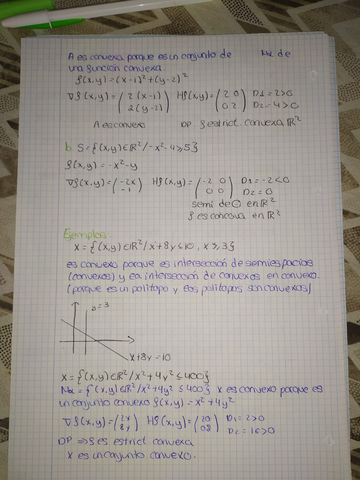 A es convexa porque es un conjunto de Nx de
una función convexa.
f(x,y) = (x-1)² + (y-2)²
∇f(x,y) = (2(x-1) 2(y-2)) Hf(x,y) = (2 0 0 2) D1 = 2>0 D2 = 4>0
A es convexo DP f estrict. convexa ℝ²
b. S = {(x,y) ∈ ℝ² / -x² - y ≥ 5}
f(x,y) = -x² - y
∇f(x,y) = (-2x -1) Hf(x,y) = (-2 0 0 0) D1 = -2<0 D2 = 0
semi de ⊖ en ℝ²
f es cóncava en ℝ²
Ejemplos:
X = {(x,y) ∈ ℝ² / x+8y ≤ 10, x ≥ 3}
es convexo porque es intersección de semiespacios
(convexos) y la intersección de convexos en convexo.
(porque es un polítopo y los polítopos son convexos)
y=3
x+8y=10
X = {(x,y) ∈ ℝ² / x² + 4y² ≤ 400}
Nx = {(x,y) ∈ ℝ² / x² + 4y² ≤ 400} X es convexo porque es
un conjunto convexo f(x,y) = x² + 4y²
∇f(x,y) = (2x 8y) Hf(x,y) = (2 0 0 8) D1 = 2>0 D2 = 16>0
DP ⇒ f es estrict convexa
X es un conjunto convexo.